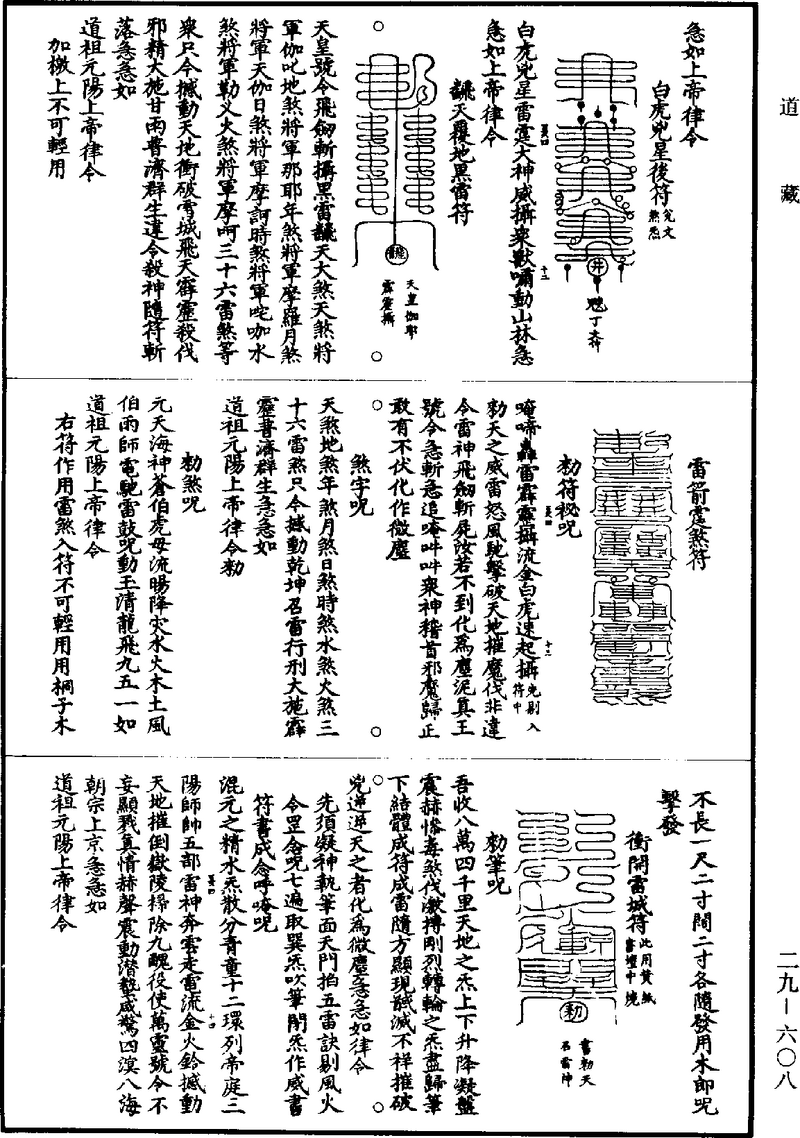 道藏
二九—六〇八
急如上帝律令
白虎兇星後符
白虎兇星雷霆大神威攝衆獸嘯動山林急
急如上帝律令
飜天覆地黑雷符
天皇號令飛劒斬攝黑雷飜天大煞天煞將
軍伽吒地煞將軍那耶年煞將軍摩羅月煞
將軍天伽日煞將軍摩訶時煞將軍咤咖水
煞將軍勒义火煞將軍摩呵三十六雷煞等
衆只今撼動天地衝破雪城飛天霹靂殺伐
邪精大施甘雨普濟群生違令殺神隨符斬
落急急如
道祖元陽上帝律令
加檄上不可輕用
雷箭霆煞符
勑符秘呪
唵啼轟雷霹靂攝流金白虎速起攝
勑天之威雷怒風馳擊破天地摧魔伐非違
令雷神飛劒斬屍汝若不到化爲塵泥真王
號令急斬急追唵吽吽衆神稽首邪魔歸正
敢有不伏化作微塵
煞字呪
天煞地煞年煞月煞日煞時煞水煞火煞三
十六雷煞只今撼動乾坤召雷行刑大施霹
靂普濟群生急急如
道祖元陽上帝律令勑
勑煞呪
元天海神蒼伯虎母流暘降灾水火木土風
伯雨師電馳雷鼓呪動玉清龍飛九五一如
道祖元陽上帝律令
右符作用雷煞入符不可輕用用桐子木
不長一尺二寸闊二寸各隨發用木郎呪
擊發
衝開雷城符 此用黄紙
書壇中燒
書勑天
召雷神
勑筆呪
吾收八萬四千里天地之炁上下升降凝盤
震赫慘毒煞伐激搏剛烈轉輪之炁盡歸筆
下結體成符成雷隨方顯現誅滅不祥摧破
兇逆逆天之者化爲微塵急急如律令
先須凝神執筆面天門掐五雷訣剔風火
令罡念呪七遍取巽炁吹筆閉炁作威書
符書成念呼唵呪
混元之精水炁散分青童十二環列帝庭三
陽師帥五部雷神奔雲走電流金火鈴撼動
天地摧倒嶽陵掃除九醜役使萬靈號令不
妄顯戮真情赫聲震動潛蟄咸驚四溟八海
朝宗上京急急如
道祖元陽上帝律令